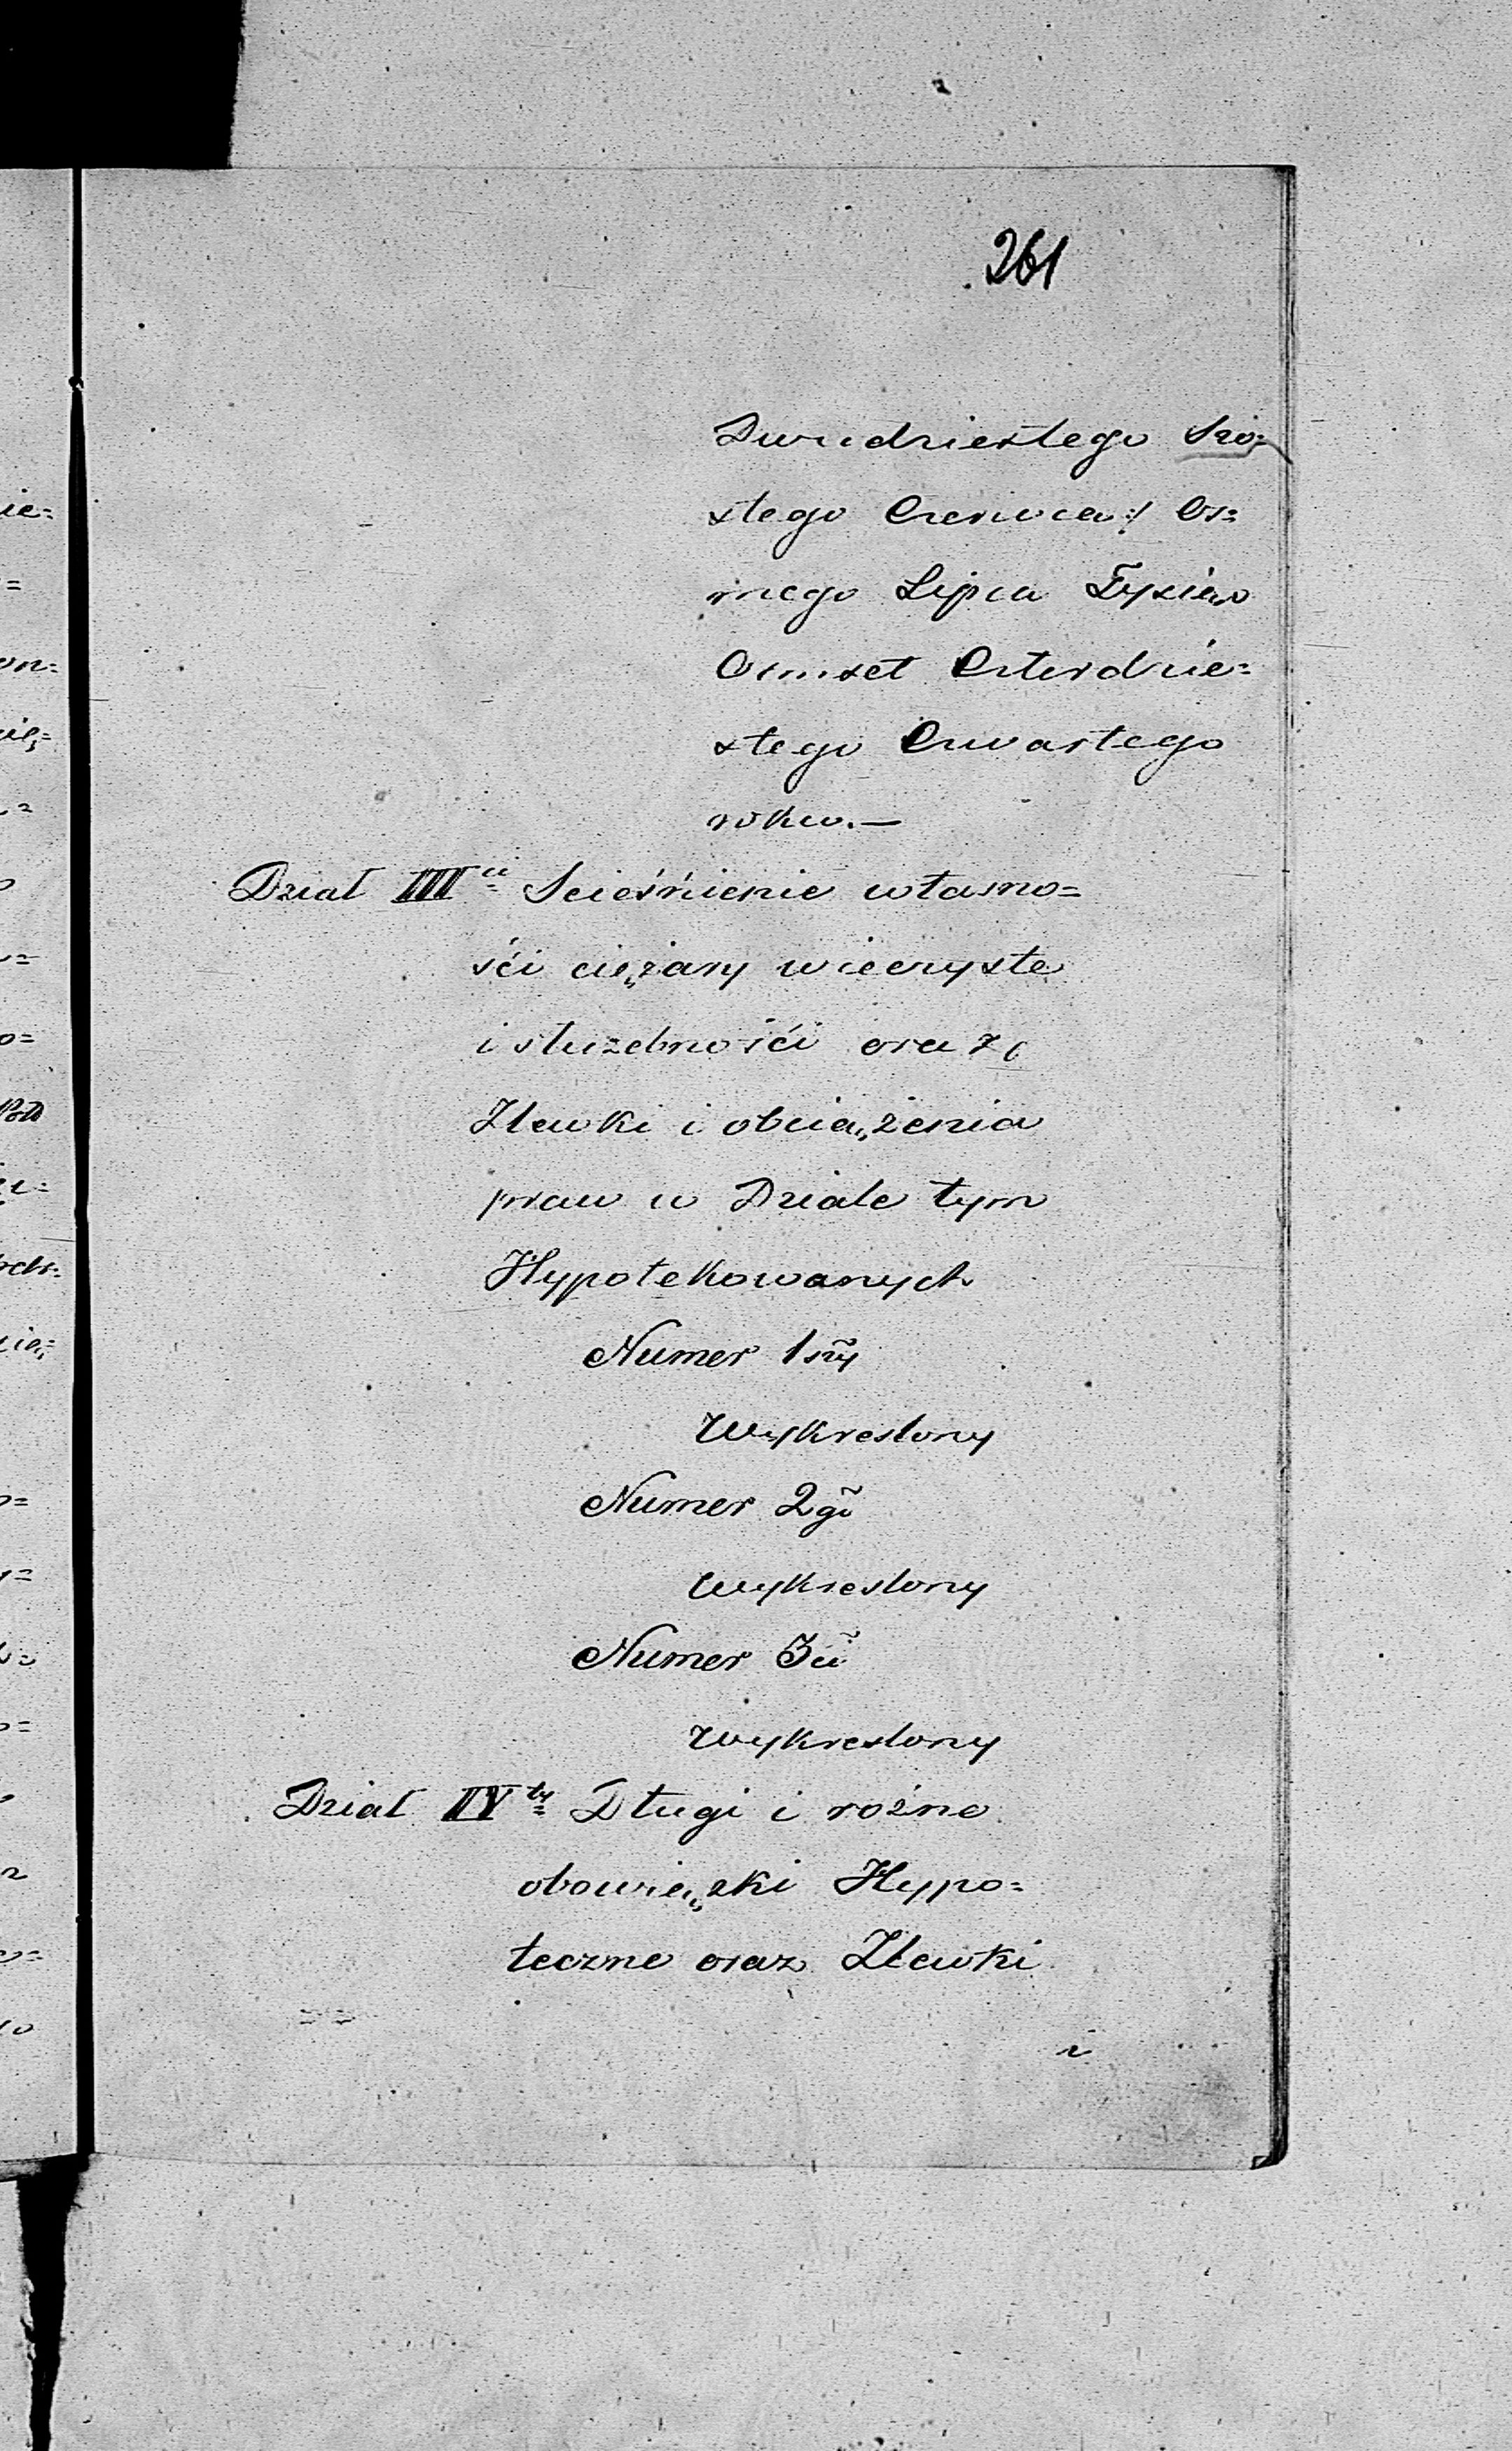 261
Dwudziestego Szó=
stego Czerwca :/ Os=
mego Lipca Tysiąc
Osmset Czterdzie=
stego Czwartego
roku.—
Dział III ci Scieśnienie własno=
ści cięzary wieczyste
i służebności oraz
Zlewki i obciążenia
praw w Dziale tym
Hypotekowanych
Numer 1szy
Wykreslony
Numer 2gi
wykreslony
Numer 3ci
wykreslony
Dział IV ty Długi i rożne
obowiązki Hypo=
teczne oraz Zlewki
i